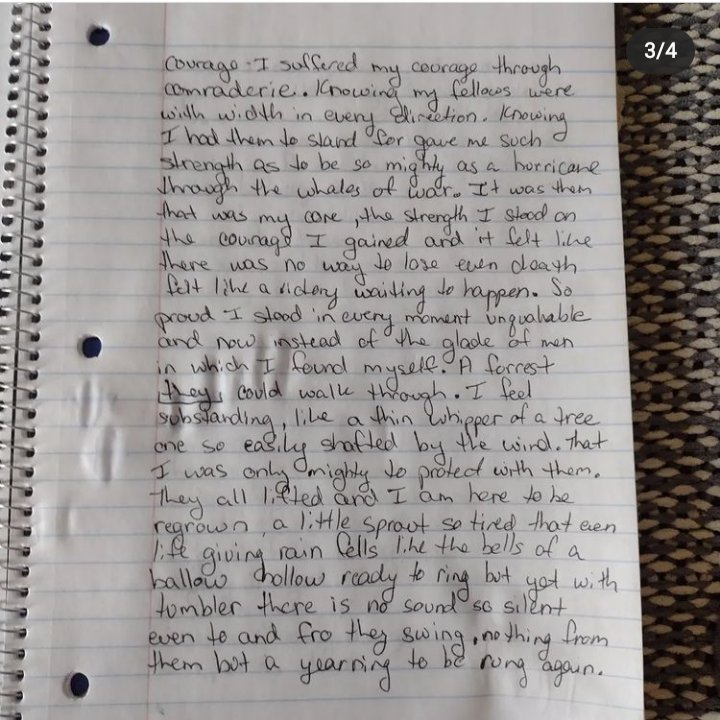 3/4
courage - I suffered my courage through
comraderie. Knowing my fellows were
with width in every direction. Knowing
I had them to stand for gave me such
strength as to be so mighty as a hurricane
through the whales of war. It was them
that was my core, the strength I stood on
the courage I gained and it felt like
there was no way to lose even death
felt like a victory waiting to happen. So
proud I stood in every moment unqualiable
and now instead of the glade of men
in which I found myself. A forrest
they could walk through. I feel
substanding, like a thin whipper of a tree
one so easily shafted by the wind. That
I was only mighty to protect with them.
they all lifted and I am here to be
regrown, a little sprout so tired that even
life giving rain fells like the bells of a
ballow hollow ready to ring but yet with
tumbler there is no sound so silent
even to and fro they swing, nothing from
them but a yearning to be rung again.